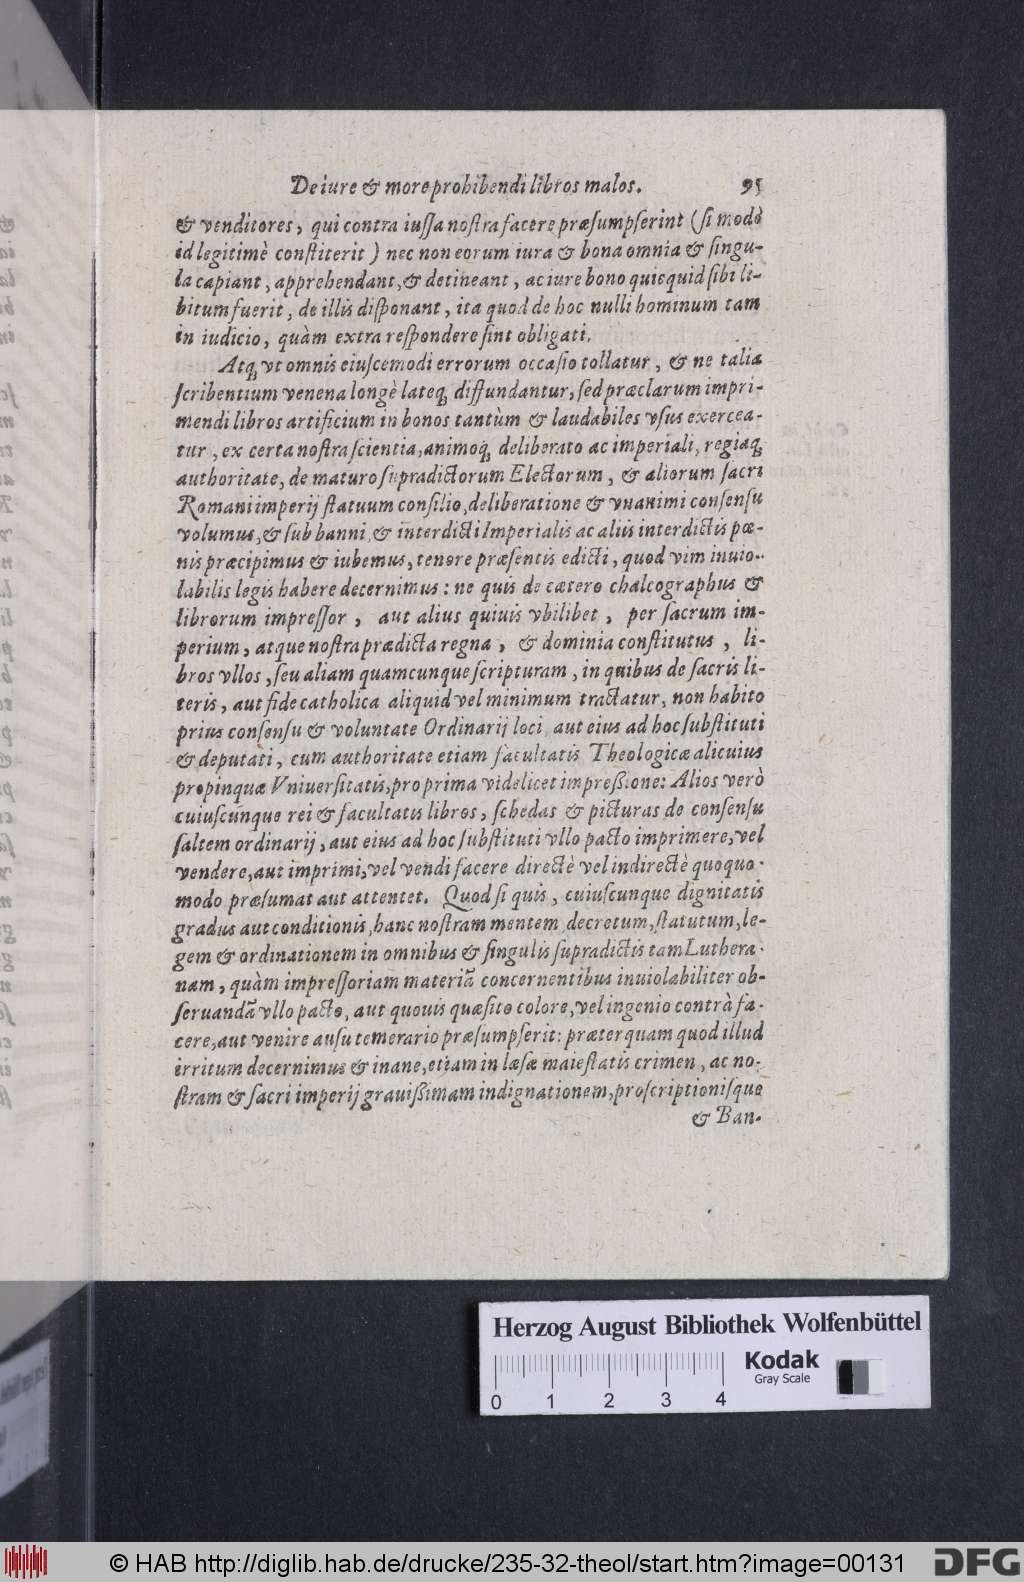 De iure & more prohibendi libros malos. 95
& venditores, qui contra iussa nostra facere præsumpserint (si modò
id legitimè constiterit) nec non eorum iura & bona omnia & singu-
la capiant, apprehendant, & detineant, ac iure bono quicquid sibi li-
bitum fuerit, de illis disponant, ita quod de hoc nulli hominum tam
in iudicio, quàm extra respondere sint obligati.
Atq; vt omnis eiuscemodi errorum occasio tollatur, & ne talia
scribentium venena longè lateq; diffundantur, sed præclarum impri-
mendi libros artificium in bonos tantùm & laudabiles vsus exercea-
tur, ex certa nostra scientia, animoq; deliberato ac imperiali, regiaq;
authoritate, de maturo supradictorum Electorum, & aliorum sacri
Romani imperij statuum consilio, deliberatione & vnanimi consensu
volumus, & sub banni, & interdicti Imperialis ac aliis interdictis pœ-
nis præcipimus & iubemus, tenore præsentis edicti, quod vim inuio-
labilis legis habere decernimus: ne quis de cætero chalcographus &
librorum impressor, aut alius quiuis vbilibet, per sacrum im-
perium, atque nostra prædicta regna, & dominia constitutus, li-
bros vllos, seu aliam quamcunque scripturam, in quibus de sacris li-
teris, aut fide catholica aliquid vel minimum tractatur, non habito
prius consensu & voluntate Ordinarij loci, aut eius ad hoc substituti
& deputati, cum authoritate etiam facultatis Theologicæ alicuius
propinquæ Vniuersitatis, pro prima videlicet impreßione: Alios verò
cuiuscunque rei & facultatis libros, schedas & picturas de consensu
saltem ordinarij, aut eius ad hoc substituti vllo pacto imprimere, vel
vendere, aut imprimi, vel vendi facere directè vel indirectè quoquo-
modo præsumat aut attentet. Quod si quis, cuiuscunque dignitatis
gradus aut conditionis, hanc nostram mentem, decretum, statutum, le-
gem & ordinationem in omnibus & singulis supradictis tam Luthera-
nam, quàm impressoriam materiã concernentibus inuiolabiliter ob-
seruandã vllo pacto, aut quouis quæsito colore, vel ingenio contrà fa-
cere, aut venire ausu temerario præsumpserit: præterquam quod illud
irritum decernimus & inane, etiam in læsæ maiestatis crimen, ac no-
stram & sacri imperij grauißimam indignationem, proscriptionisque
& Ban-
Herzog August Bibliothek Wolfenbüttel
Kodak
Gray Scale
0 1 2 3 4
© HAB http://diglib.hab.de/drucke/235-32-theol/start.htm?image=00131
DFG